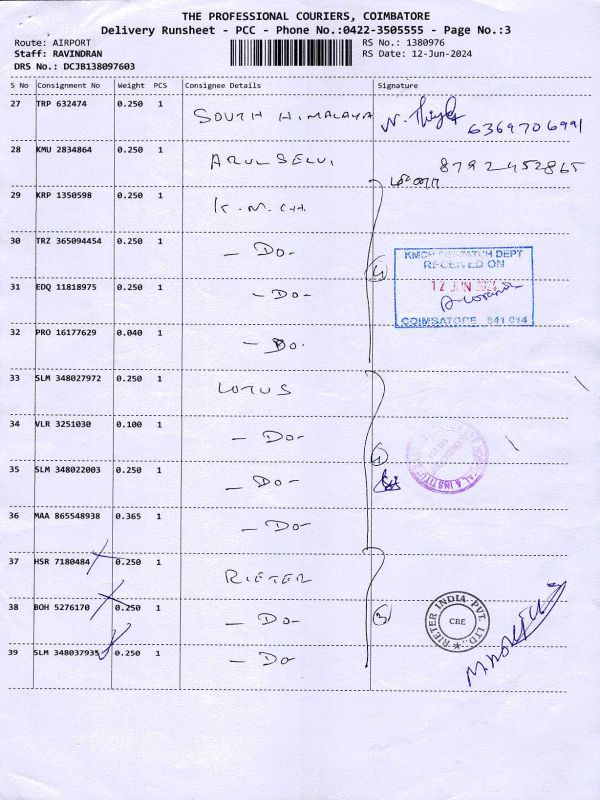 THE PROFESSIONAL COURIERS, COIMBATORE
Delivery Runsheet - PCC - Phone No.:0422-3505555 - Page No.:3
Route: AIRPORT
RS No.: 1380976
Staff: RAVINDRAN
RS Date: 12-Jun-2024
DRS No.: DCJB138097603
S No Consignment No Weight PCS Consignee Details Signature
27 TRP 632474 0.250 1 SOUTH HIMALAYA
6369706991
28 KMU 2834864 0.250 1 ARUL SELVI
8792452865
29 KRP 1350598 0.250 1 K.M.C.H.
30 TRZ 365094454 0.250 1 - DO-
4
KMCH DESPATCH DEPT
RECEIVED ON
12 JUN 2024
COIMBATORE 641 014
31 EDQ 11818975 0.250 1 - DO-
32 PRO 16177629 0.040 1 - DO-
33 SLM 348027972 0.250 1 LOTUS
34 VLR 3251030 0.100 1 - DO-
4
35 SLM 348022003 0.250 1 - DO-
36 MAA 865548938 0.365 1 - DO-
37 HSR 7180484 0.250 1 RIETER
38 BOH 5276170 0.250 1 - DO-
3
RIETER INDIA PVT. LTD.
CBE
39 SLM 348037935 0.250 1 - DO-